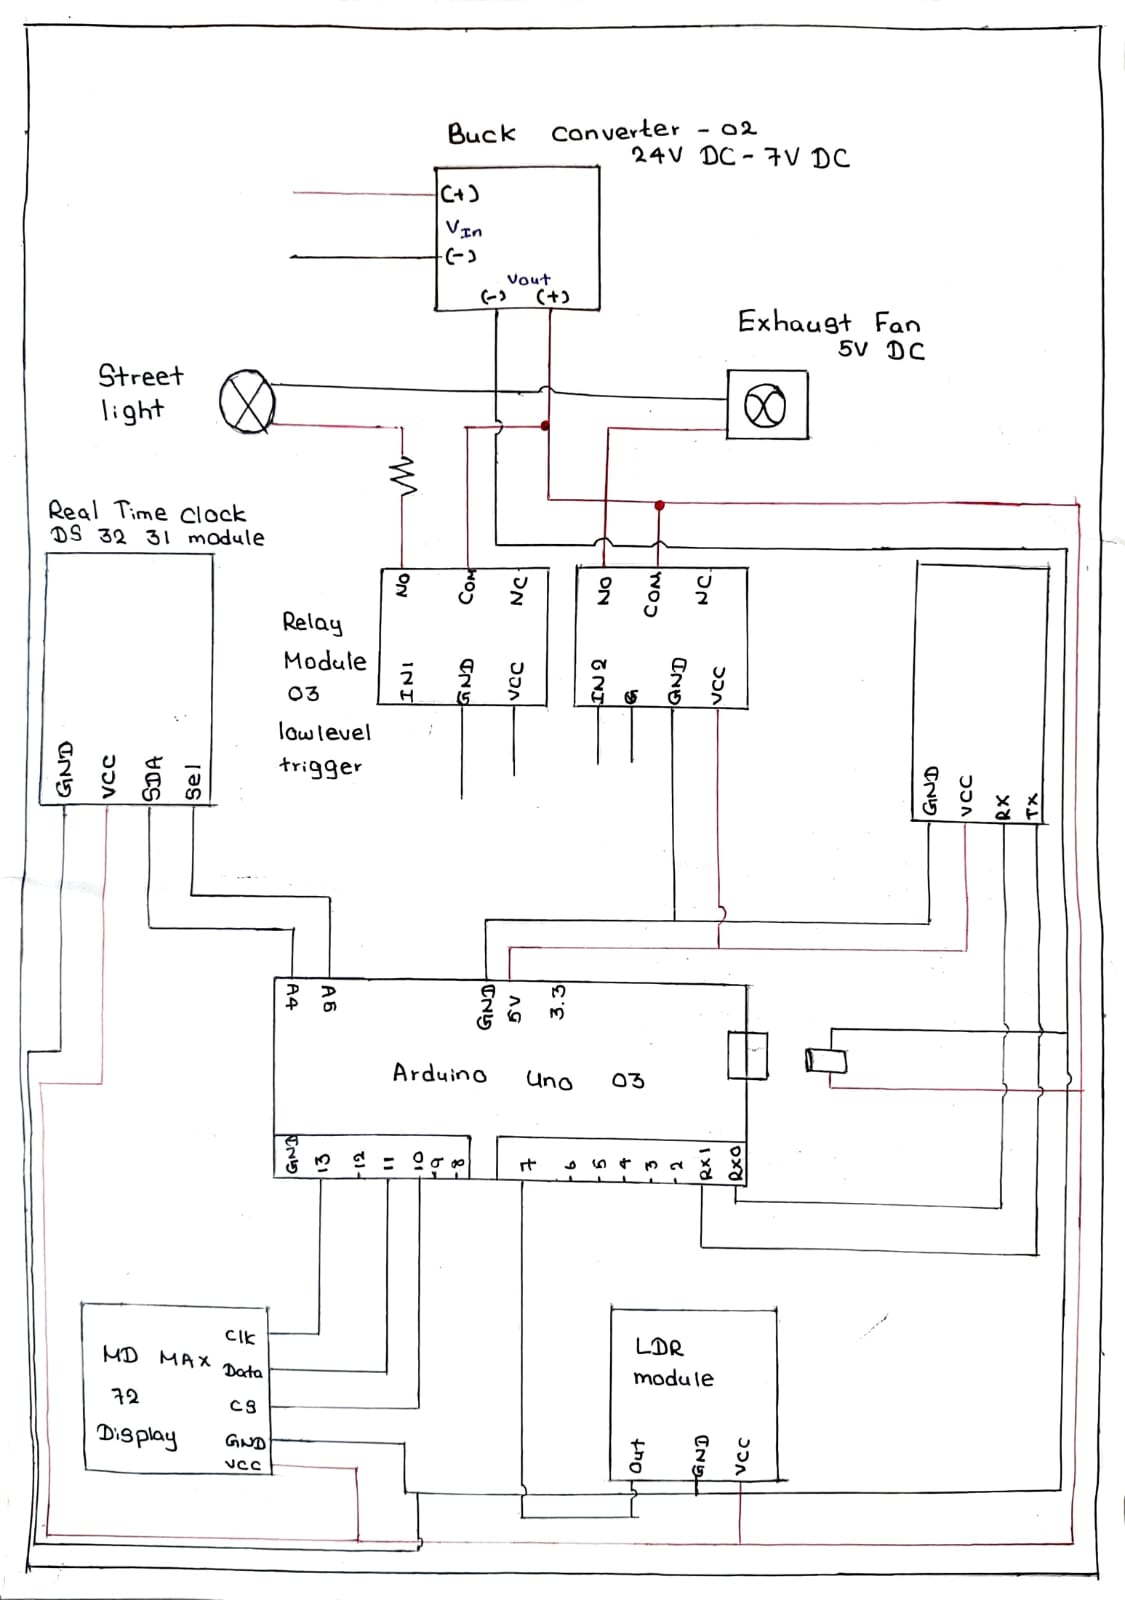 Buck Converter - 02
24V DC - 7V DC
(+)
VIn
(-)
Vout
(-) (+)
Exhaust Fan
5V DC
Street
light
Real Time Clock
DS 32 31 module
GND VCC SDA Sel
Relay
Module
03
lowlevel
trigger
NO COM NC
IN1 GND VCC
NO COM NC
IN2 G GND VCC
GND VCC RX TX
A4 A5 GND 5V 3.3
Arduino Uno 03
GND 13 -12 11 10 -9 -8 7 -6 -5 -4 -3 -2 RX1 RX0
MD MAX
72
Display
Clk
Data
CS
GND
VCC
LDR
module
Out GND VCC